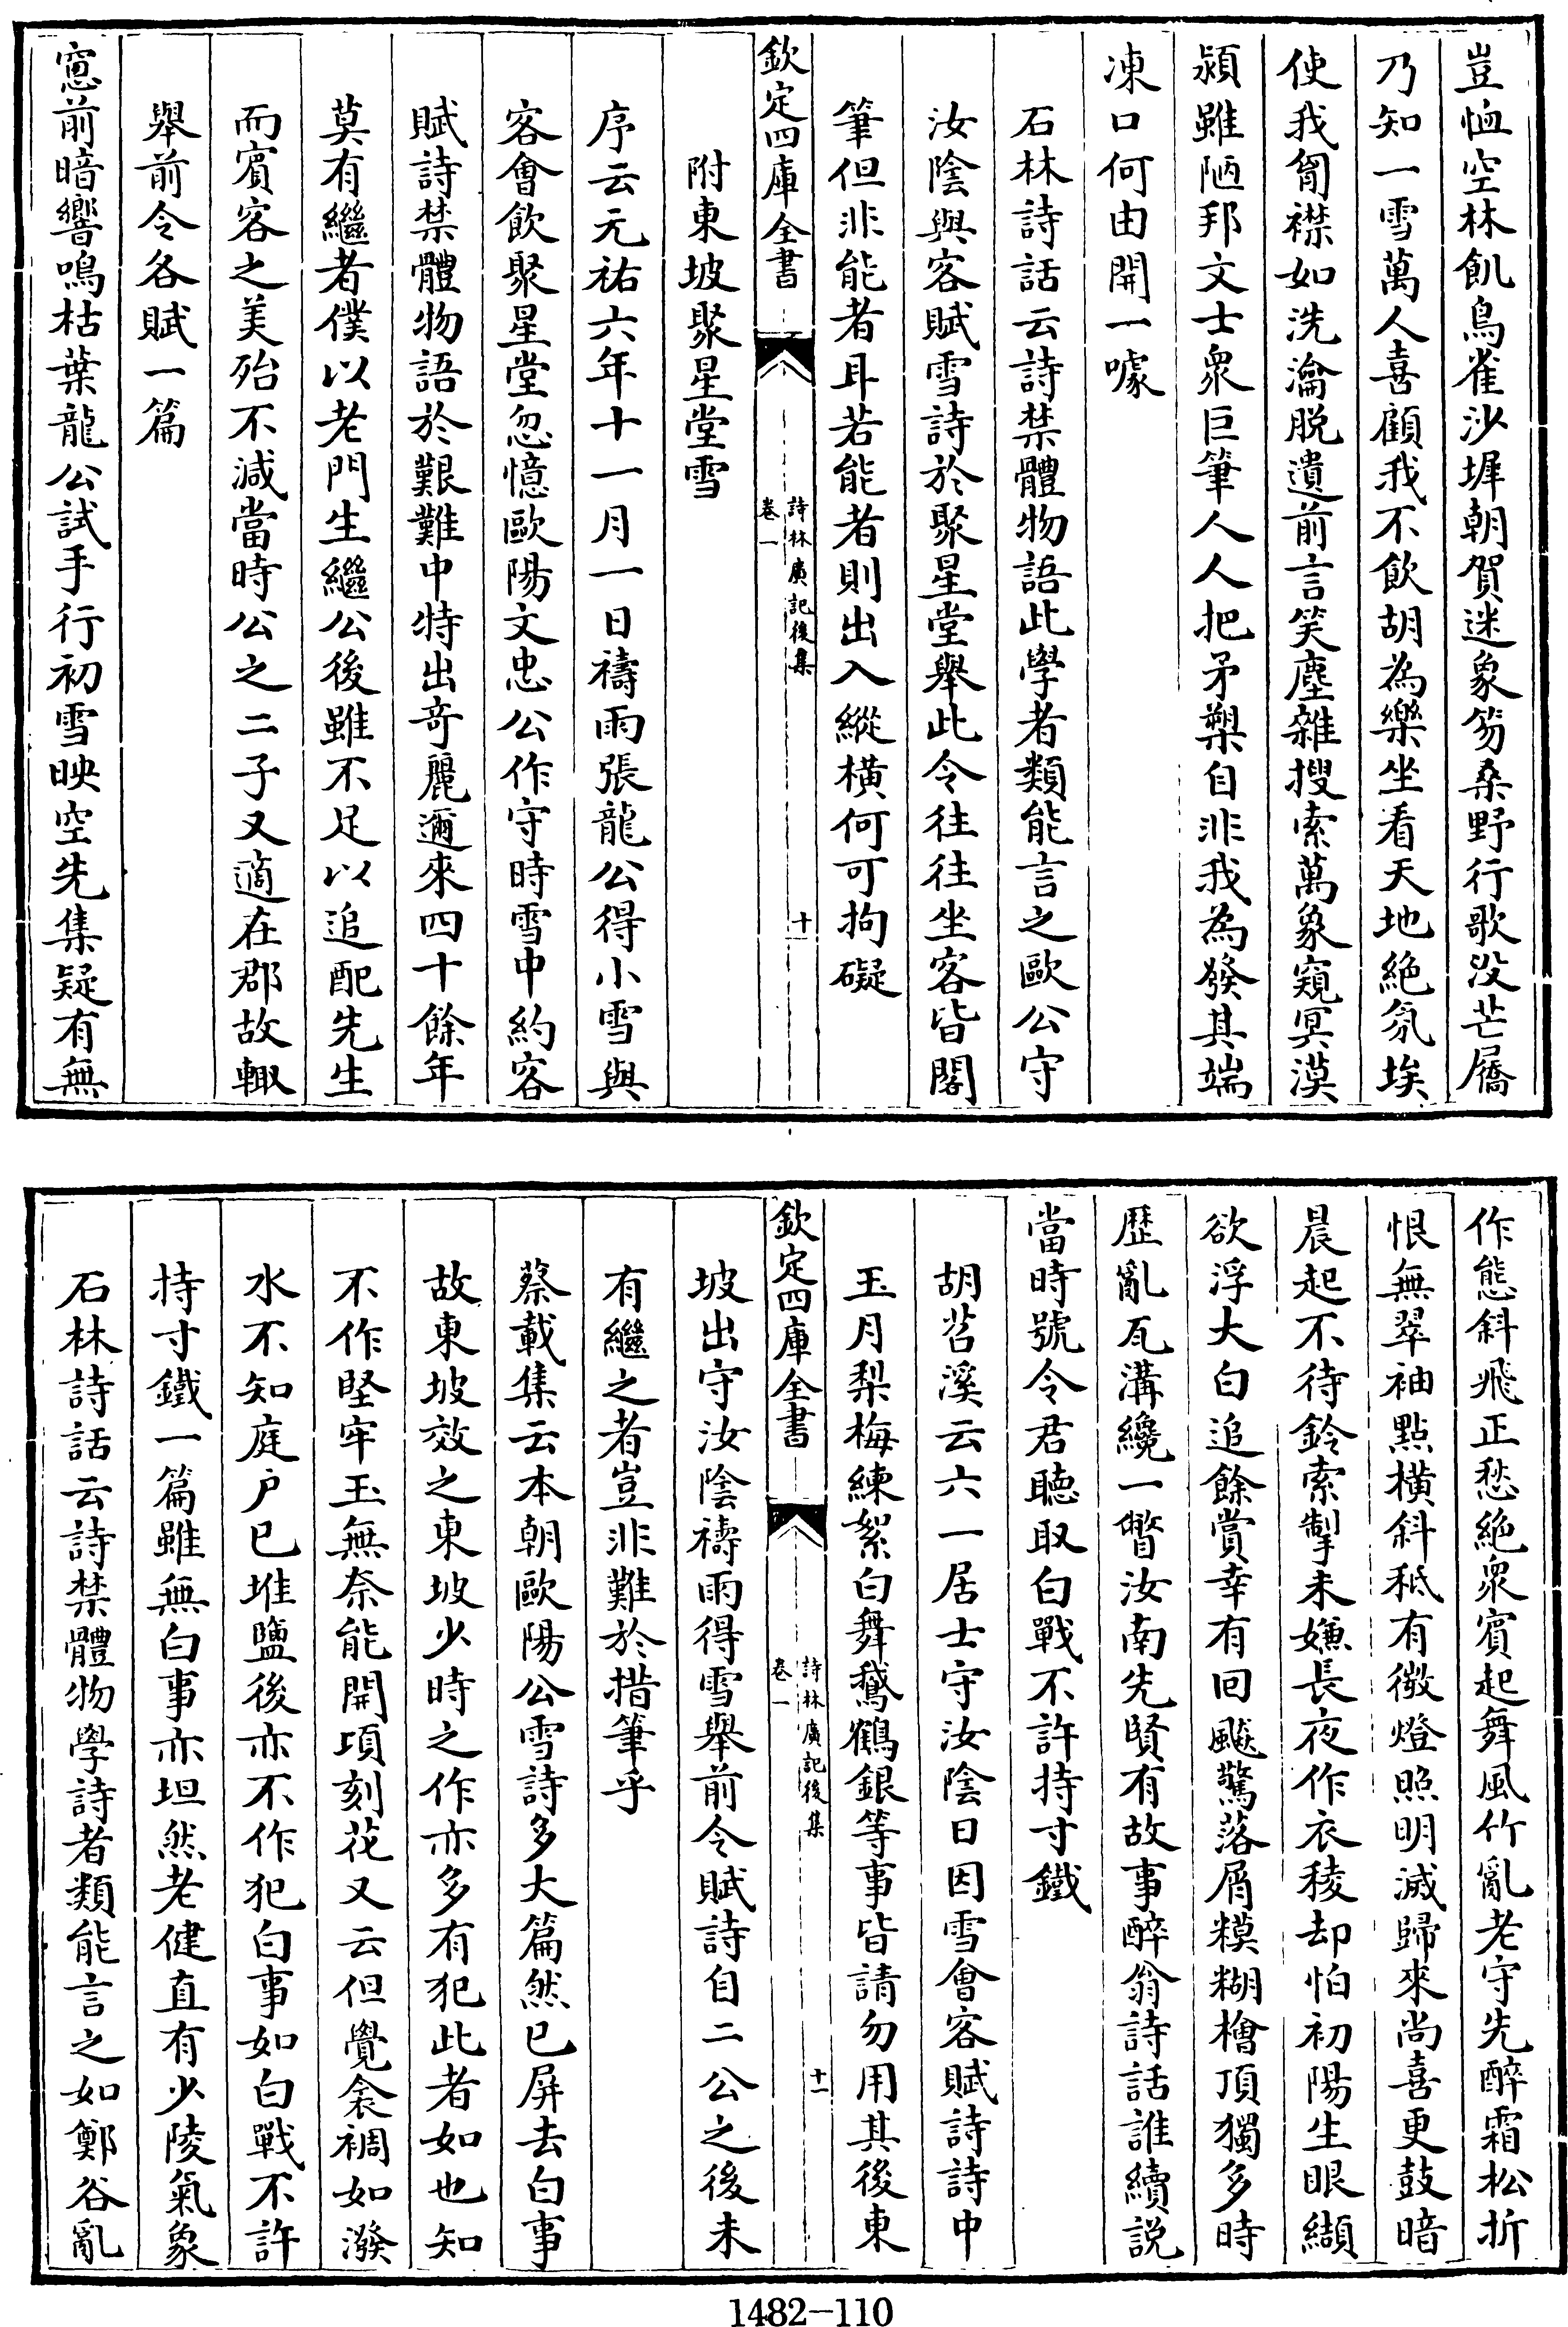 豈恤空林飢鳥雀沙墀朝賀迷象笏桑野行歌沒芒屩
乃知一雪萬人喜顧我不飲胡為樂坐看天地絶氛埃
使我胷襟如洗瀹脱遺前言笑塵雜搜索萬象窺冥漠
潁雖陋邦文士衆巨筆人人把矛槊自非我為發其端
凍口何由開一噱
石林詩話云詩禁體物語此學者類能言之歐公守
汝陰與客賦雪詩於聚星堂舉此令往往坐客皆閣
筆但非能者耳若能者則出入縱横何可拘礙
欽定四庫全書
詩林廣記後集
卷一
十
附東坡聚星堂雪
序云元祐六年十一月一日禱雨張龍公得小雪與
客會飲聚星堂忽憶歐陽文忠公作守時雪中約客
賦詩禁體物語於艱難中特出奇麗邇來四十餘年
莫有繼者僕以老門生繼公後雖不足以追配先生
而賓客之美殆不減當時公之二子又適在郡故輙
舉前令各賦一篇
窻前暗響鳴枯葉龍公試手行初雪映空先集疑有無
作態斜飛正愁絶衆賓起舞風竹亂老守先醉霜松折
恨無翠袖點横斜秪有微燈照明滅歸來尚喜更鼓暗
晨起不待鈴索掣未嫌長夜作衣稜却怕初陽生眼纈
欲浮大白追餘賞幸有回飇驚落屑糢糊檜頂獨多時
歷亂瓦溝纔一瞥汝南先賢有故事醉翁詩話誰續説
當時號令君聽取白戰不許持寸鐵
胡苕溪云六一居士守汝陰日因雪會客賦詩詩中
玉月梨梅練絮白舞鵞鶴銀等事皆請勿用其後東
欽定四庫全書
詩林廣記後集
卷一
十一
坡出守汝陰禱雨得雪舉前令賦詩自二公之後未
有繼之者豈非難於措筆乎
蔡載集云本朝歐陽公雪詩多大篇然已屏去白事
故東坡效之東坡少時之作亦多有犯此者如也知
不作堅牢玉無奈能開頃刻花又云但覺衾裯如潑
水不知庭户已堆鹽後亦不作犯白事如白戰不許
持寸鐵一篇雖無白事亦坦然老健直有少陵氣象
石林詩話云詩禁體物學詩者類能言之如鄭谷亂
1482-110